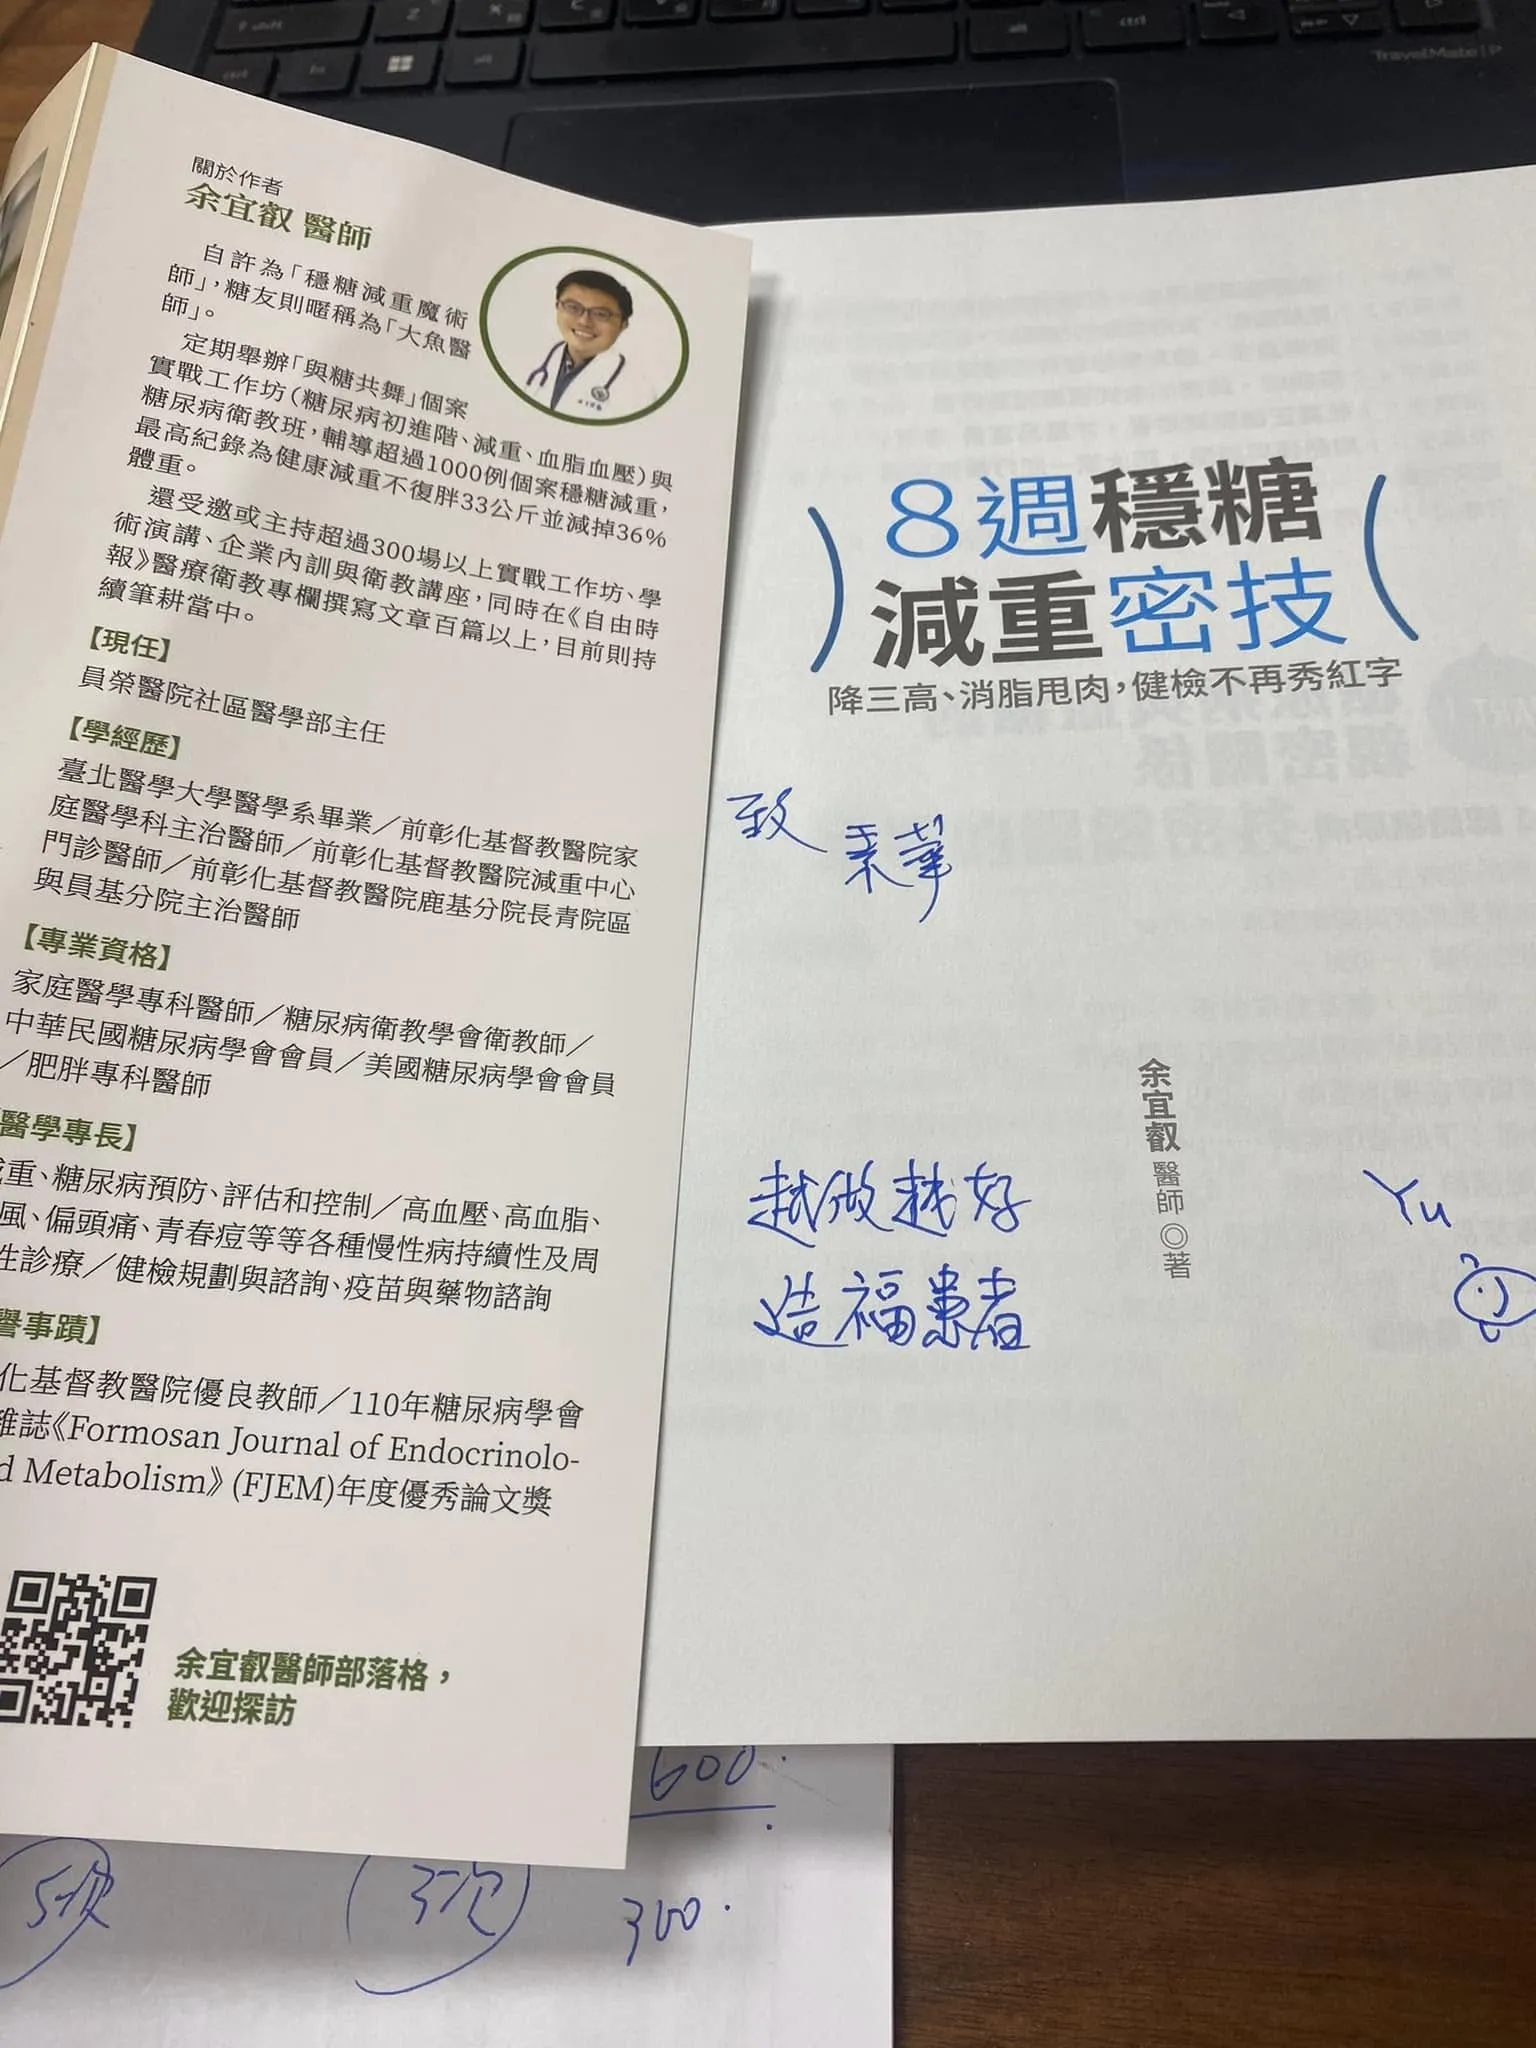 shift
Z
X
ctrl
fn
alt
alt
ctrl
TravelMate
關於作者
余宜叡 醫師
自許為「穩糖減重魔術
師」，糖友則暱稱為「大魚醫
師」。
定期舉辦「與糖共舞」個案
實戰工作坊（糖尿病初進階、減重、血脂血壓）與
糖尿病衛教班，輔導超過1000例個案穩糖減重，
最高紀錄為健康減重不復胖33公斤並減掉36%
體重。
還受邀或主持超過300場以上實戰工作坊、學
術演講、企業內訓與衛教講座，同時在《自由時
報》醫療衛教專欄撰寫文章百篇以上，目前則持
續筆耕當中。
【現任】
員榮醫院社區醫學部主任
【學經歷】
臺北醫學大學醫學系畢業／前彰化基督教醫院家
庭醫學科主治醫師／前彰化基督教醫院減重中心
門診醫師／前彰化基督教醫院鹿基分院長青院區
與員基分院主治醫師
【專業資格】
家庭醫學專科醫師／糖尿病衛教學會衛教師／
中華民國糖尿病學會會員／美國糖尿病學會會員
／肥胖專科醫師
醫學專長】
重、糖尿病預防、評估和控制／高血壓、高血脂、
風、偏頭痛、青春痘等等各種慢性病持續性及周
性診療／健檢規劃與諮詢、疫苗與藥物諮詢
譽事蹟】
化基督教醫院優良教師／110年糖尿病學會
雜誌《Formosan Journal of Endocrinolo-
d Metabolism》(FJEM)年度優秀論文獎
余宜叡醫師部落格，
歡迎探訪
8週穩糖
減重密技
降三高、消脂甩肉，健檢不再秀紅字
致 秉華
余宜叡 醫師◎著
越做越好
造福患者
Yu
600.
3次
300.